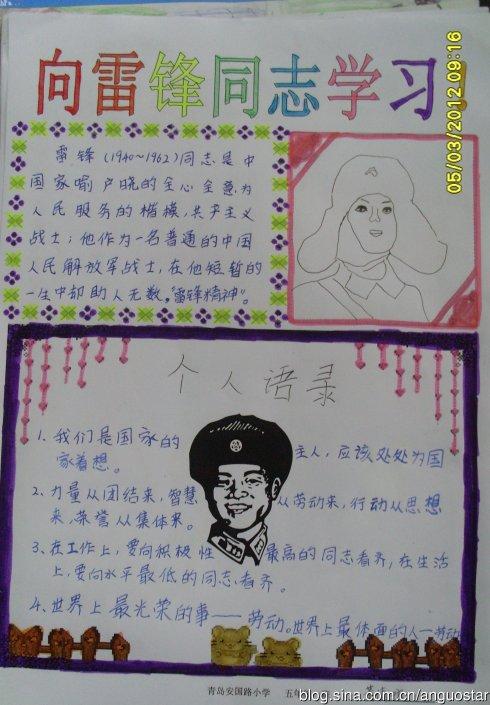 向雷锋同志学习
05/03/2012 09:16
雷锋(1940~1962)同志是中
国家喻户晓的全心全意为
人民服务的楷模,共产主义
战士;他作为一名普通的中国
人民解放军战士,在他短暂的
一生中却助人无数。"雷锋精神"。
个人语录
1、我们是国家的主人,应该处处为国
家着想。
2、力量从团结来,智慧从劳动来,行动从思想
来,荣誉从集体来。
3、在工作上,要向积极性最高的同志看齐,在生活
上,要向水平最低的同志看齐。
4、世界上最光荣的事——劳动。世界上最体面的人—劳动
青岛安国路小学 五年
blog.sina.com.cn/anguostar